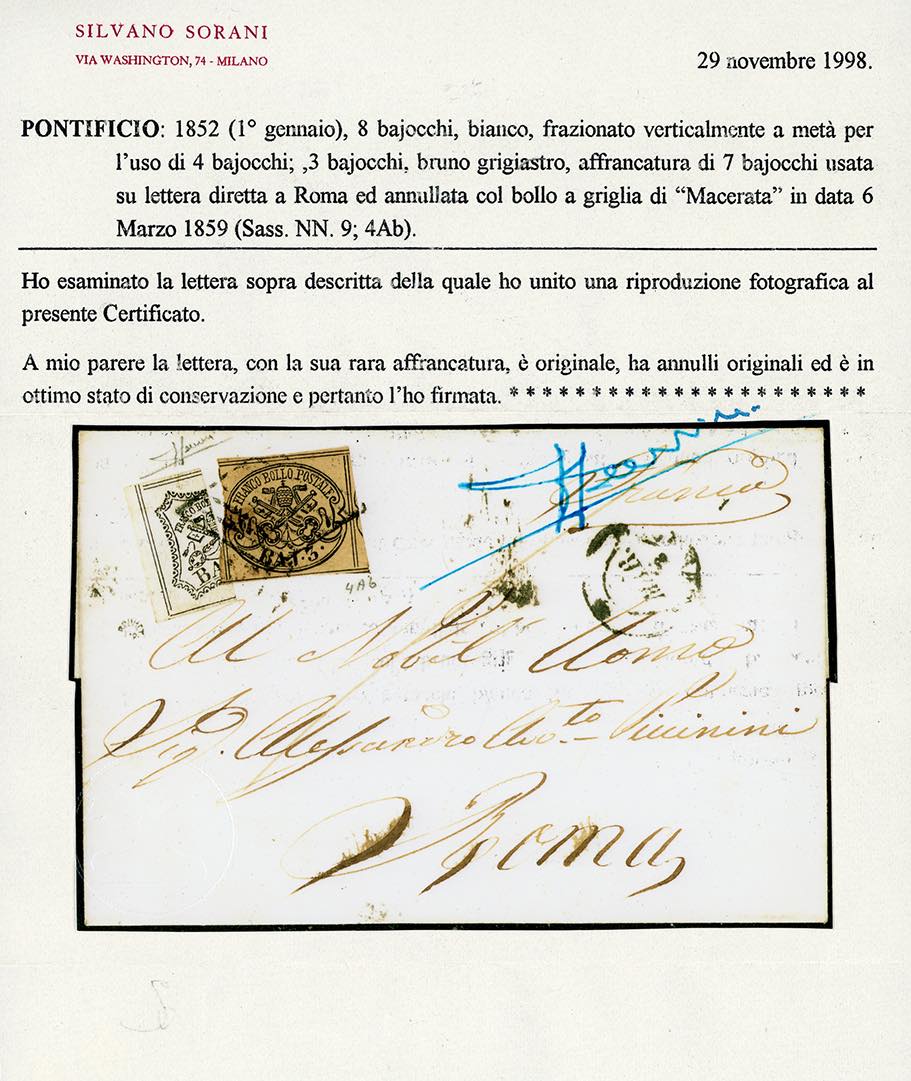 SILVANO SORANI
VIA WASHINGTON, 74 - MILANO
29 novembre 1998.
PONTIFICIO: 1852 (1° gennaio), 8 bajocchi, bianco, frazionato verticalmente a metà per
l'uso di 4 bajocchi; ,3 bajocchi, bruno grigiastro, affrancatura di 7 bajocchi usata
su lettera diretta a Roma ed annullata col bollo a griglia di “Macerata” in data 6
Marzo 1859 (Sass. NN. 9; 4Ab).
Ho esaminato la lettera sopra descritta della quale ho unito una riproduzione fotografica al
presente Certificato.
A mio parere la lettera, con la sua rara affrancatura, è originale, ha annulli originali ed è in
ottimo stato di conservazione e pertanto l'ho firmata. * * * * * * * * * * * * * * * * * * * * * *
FRANCO BOLLO POSTALE
BAJ. 3.
FRANCO BO
BA
4Ab
Al Nobil Uomo
Sig. Alessandro Avv.to Piccinini
Roma